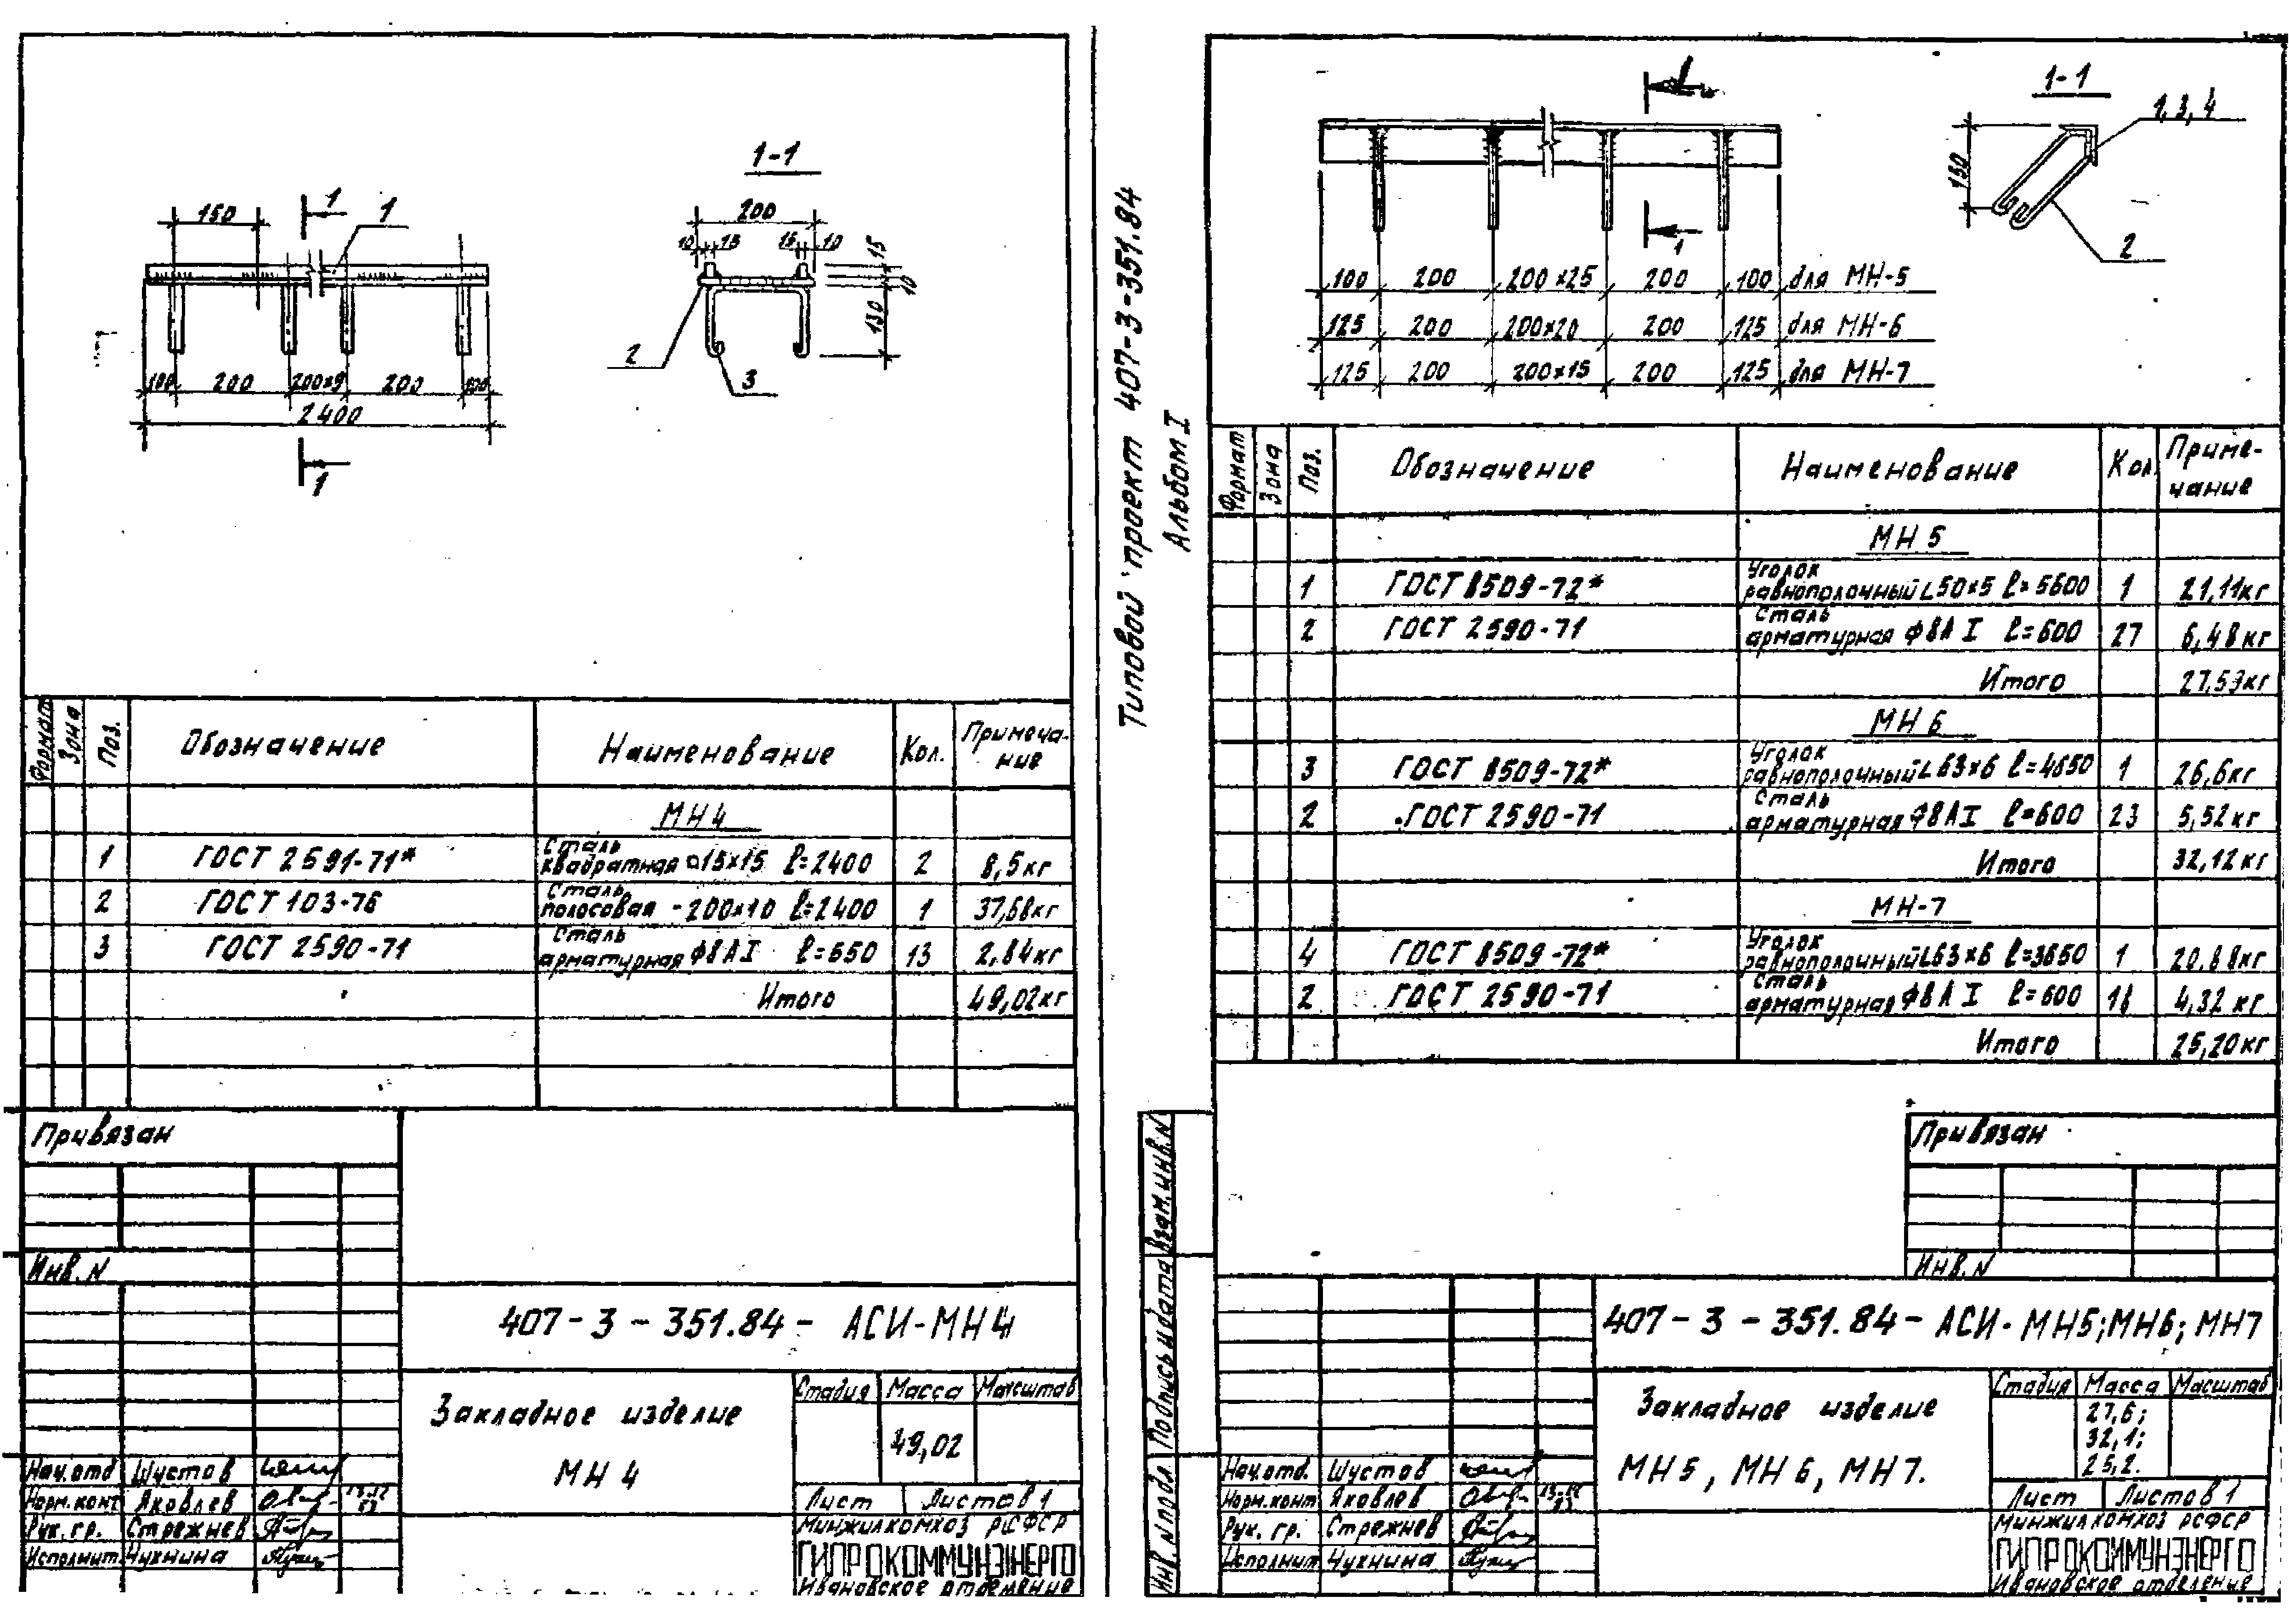 1-1
150
1
1
200
10 15 15 10
15
10
130
2
3
100 200 200×9 200 100
2400
1
Формат
Зона
Поз.
Обозначение
Наименование
Кол.
Примеча-
ние
МН4
1 ГОСТ 2591-71* Сталь
квадратная □15×15 ℓ=2400 2 8,5кг
2 ГОСТ 103-76 Сталь
полосовая -200×10 ℓ=2400 1 37,68кг
3 ГОСТ 2590-71 Сталь
арматурная Ф8АI ℓ=550 13 2,84кг
Итого 49,02кг
Привязан
Инв.N
407-3-351.84- АСИ-МН4
Закладное изделие
МН 4
Стадия Масса Масштаб
49,02
Лист Листов 1
Минжилкомхоз РСФСР
ГИПРОКОММУНЭНЕРГО
Ивановское отделение
Нач.отд Шустов
Норм.конт Яковлев
Рук.гр. Стрежнев
Исполнит. Чухнина
Типовой проект 407-3-351.84
Альбом I
1-1
1,3,4
150
2
1
100 200 200×25 200 100 для МН-5
125 200 200×20 200 125 для МН-6
125 200 200×15 200 125 для МН-7
Формат
Зона
Поз.
Обозначение
Наименование
Кол.
Приме-
чание
МН 5
1 ГОСТ 8509-72* Уголок
равнополочный L50×5 ℓ=5600 1 21,11кг
2 ГОСТ 2590-71 Сталь
арматурная Ф8АI ℓ=600 27 6,48кг
Итого 27,59кг
МН 6
3 ГОСТ 8509-72* Уголок
равнополочный L63×6 ℓ=4650 1 26,6кг
2 ГОСТ 2590-71 Сталь
арматурная Ф8АI ℓ=600 23 5,52кг
Итого 32,12кг
МН-7
4 ГОСТ 8509-72* Уголок
равнополочный L63×6 ℓ=3650 1 20,88кг
2 ГОСТ 2590-71 Сталь
арматурная Ф8АI ℓ=600 18 4,32кг
Итого 25,20кг
Привязан
Инв.N
Взам.инв.N
Подпись и дата
Инв.N подл.
407-3-351.84-АСИ-МН5;МН6;МН7
Закладное изделие
МН5, МН6, МН7.
Стадия Масса Масштаб
27,6;
32,1;
25,2.
Лист Листов 1
Минжилкомхоз РСФСР
ГИПРОКОММУНЭНЕРГО
Ивановское отделение
Нач.отд. Шустов
Норм.конт Яковлев
Рук. гр. Стрежнев
Исполнит Чухнина